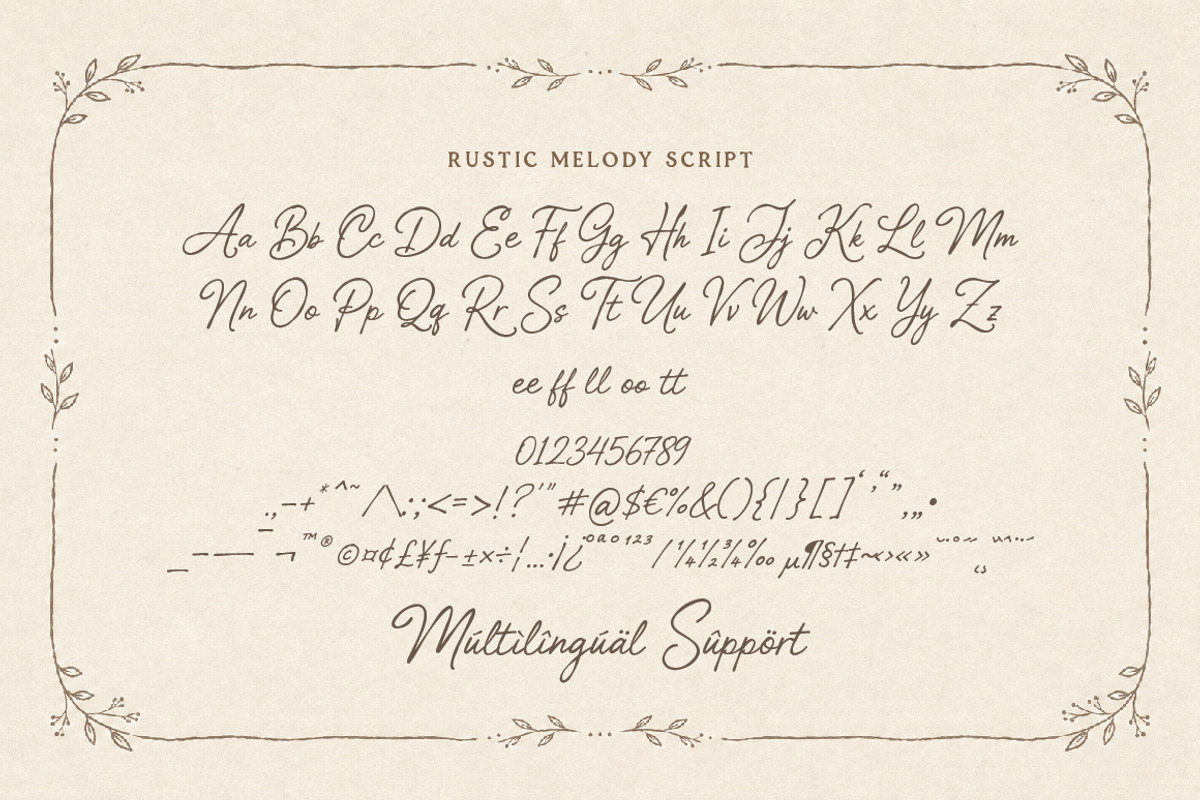 RUSTIC MELODY SCRIPT
Aa Bb Cc Dd Ee Ff Gg Hh Ii Jj Kk Ll Mm
Nn Oo Pp Qq Rr Ss Tt Uu Vv Ww Xx Yy Zz
ee ff ll oo tt
0123456789
.,-+*^~/\:;<=>!?'"#@$€%&(){|}[]‘‚“”„•
_–—¯¬™®©¤¢£¥ƒ–±×÷¦…·¡¿ºªº¹²³⁄¼½¾‰µ¶§†‡~‹›«»
Múltìlîngúäl Sûppört